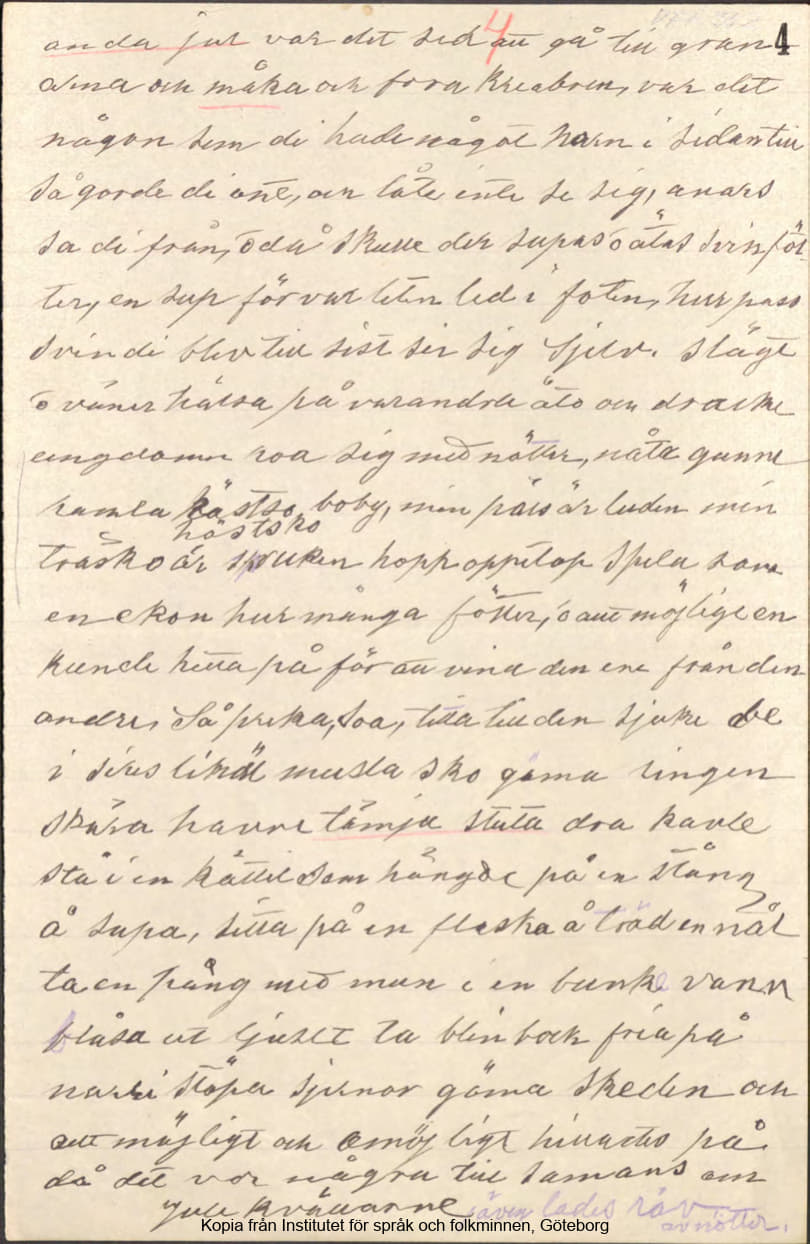 4
4
anda jul var det sed att gå till gran-
arna och måka och fora Kreabren, var det
någon som di hade något horn i sidan till
så gorde di one, och låte inte se sig, anars
sa di från, o då skulle der supas o ätas svinföt-
ter, en sup för var liten led i foten, hur pass
svin di blev till sist ser sig sjelv. Slägt
o väner hälsa på varandra åto och dracke
ungdomen roa sig med nötter, nåta gunne
ramla hästsko boby, min päls är luden min
hästsko
träsko är spruken hopp oppilop spela som
en ekon hur många fötter, o allt möjligt en
kunde hitta på för att vina den ene från den
andre, Så preka, soa, titta till den sjuke be
i lik musla sko gäma ringen
skära havre tämja stuta dra kavle
stå i en kättel som hängde på en stång
å supa, sitta på en flaska å träd en nål
ta en päng med mun i en bunke vann
blåsa ut ljuset ta blinbock fria på
narri stöpa sjernor gäma skeden och
allt möjligt och omöjligt hittades på
då det var några till samans om
Jule kvällarne även lades räv
av nötter.
Kopia från Institutet för språk och folkminnen, Göteborg